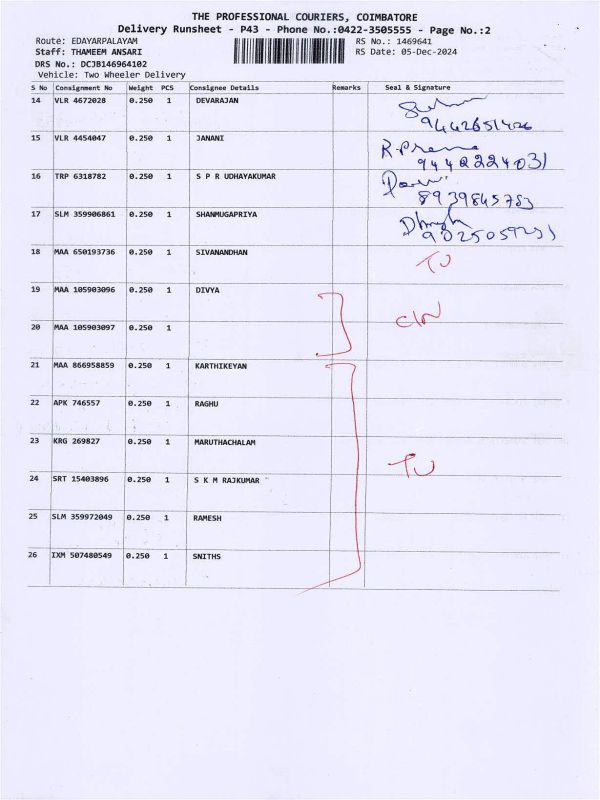 THE PROFESSIONAL COURIERS, COIMBATORE
Delivery Runsheet - P43 - Phone No.:0422-3505555 - Page No.:2
Route: EDAYARPALAYAM RS No.: 1469641
Staff: THAMEEM ANSARI RS Date: 05-Dec-2024
DRS No.: DCJB146964102
Vehicle: Two Wheeler Delivery
S No Consignment No Weight PCS Consignee Details Remarks Seal & Signature
14 VLR 4672028 0.250 1 DEVARAJAN
15 VLR 4454047 0.250 1 JANANI
R. Prema
9442224031
16 TRP 6318782 0.250 1 S P R UDHAYAKUMAR
8939845783
17 SLM 359906861 0.250 1 SHANMUGAPRIYA
18 MAA 650193736 0.250 1 SIVANANDHAN
19 MAA 105903096 0.250 1 DIVYA
20 MAA 105903097 0.250 1
21 MAA 866958859 0.250 1 KARTHIKEYAN
22 APK 746557 0.250 1 RAGHU
23 KRG 269827 0.250 1 MARUTHACHALAM
24 SRT 15403896 0.250 1 S K M RAJKUMAR
25 SLM 359972049 0.250 1 RAMESH
26 IXM 507480549 0.250 1 SNITHS